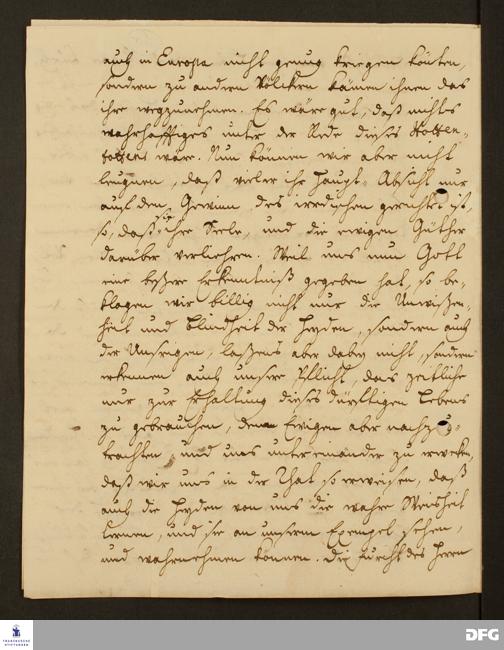 auch in Europa nicht genug kriegen könten,
sondern zu andern Völckern kämen ihnen das
ihre wegzunehmen. Es wäre gut, daß nichts
wahrhafftiges unter der Rede dieses Hotten-
totten wäre. Nun können wir aber nicht
leugnen, daß vieler ihr Haupt-Absicht nur
auf den Gewinn des irrdischen gerichtet ist,
so, daß sie ihre Seele, und die ewigen Güther
darüber verliehren. Weil uns nun Gott
eine beßere Erkenntniß gegeben hat, so be-
klagen wir billig nicht nur die Unwißen-
heit und Blindheit der Heyden, sondern auch
der Unsrigen, laßens aber dabey nicht, sondern
erkennen auch unsere Pflicht, das zeitliche
nur zur Erhaltung dieses dürfftigen Lebens
zu gebrauchen, dem Ewigen aber nachzu-
trachten, und uns untereinander zu erwecken,
daß wir uns in der That so erweisen, daß
auch die Heyden von uns die wahre Weißheit
lernen, und sie an unserm Exempel sehen,
und wahrnehmen können. Die Furcht des Herrn
FRANCKESCHE
STIFTUNGEN
DFG